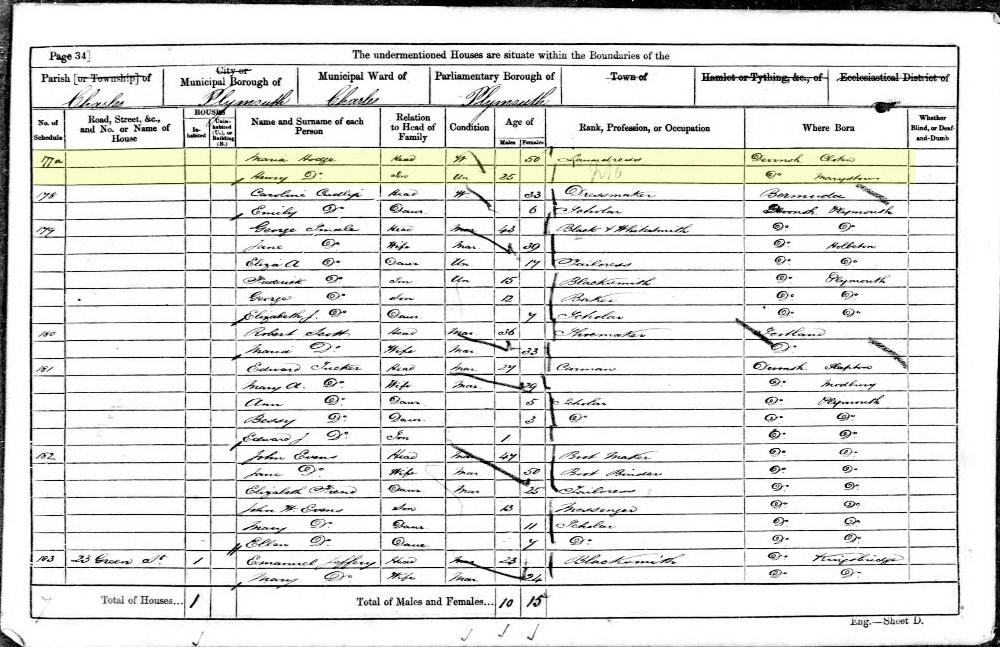 Page 34]
The undermentioned Houses are situate within the Boundaries of the
Parish [or Township] of City or Municipal Borough of Municipal Ward of Parliamentary Borough of Town of Hamlet or Tything, &c., of Ecclesiastical District of
Charles Plymouth Charles Plymouth
No. of Schedule Road, Street, &c., and No. or Name of House HOUSES In-habited Unin-habited (U.), or Building (B.) Name and Surname of each Person Relation to Head of Family Condition Age of Males Females Rank, Profession, or Occupation Where Born Whether Blind, or Deaf-and-Dumb
177a Maria Hodge Head W 50 Laundress Devonsh
Henry Do Son Un 25 Do Marystow
178 Caroline Head W 33 Dressmaker Bermuda
Emily Do Daur 6 Scholar Devonsh Plymouth
179 George Head Mar 43 Black & Whitesmith Do Do
Jane Do Wife Mar 39 Do Holbeton
Eliza A Do Daur Un 17 Tailoress Do Do
Frederick Do Son Un 15 Blacksmith Do Plymouth
George Do Son 12 Baker Do Do
Elizabeth J. Do Daur 7 Scholar Do Do
180 Robert Scott Head Mar 36 Shoemaker Scotland
Maria Do Wife Mar 33 Do
181 Edward Tucker Head Mar 27 Carman Devonsh
Mary A. Do Wife Mar 29 Do Modbury
Ann Do Daur 5 Scholar Do Plymouth
Bessy Do Daur 3 Do Do Do
Edward J. Do Son 1 Do Do
182 John Evens Head Mar 47 Boot Maker Do Do
Jane Do Wife Mar 50 Boot Binder Do Do
Elizabeth Frend Daur Mar 25 Tailoress Do Do
John W Evens Son 13 Messenger Do Do
Mary Do Daur 11 Scholar Do Do
Ellen Do Daur 7 Do Do Do
183 23 Green St 1 Emanuel Jeffery Head Mar 23 Blacksmith Do Kingsbridge
Mary Do Wife Mar 24 Do Do
Total of Houses... 1 Total of Males and Females... 10 15
Eng.—Sheet D.